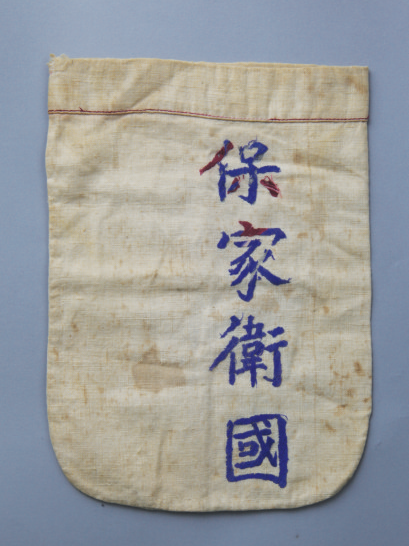 保家衛國